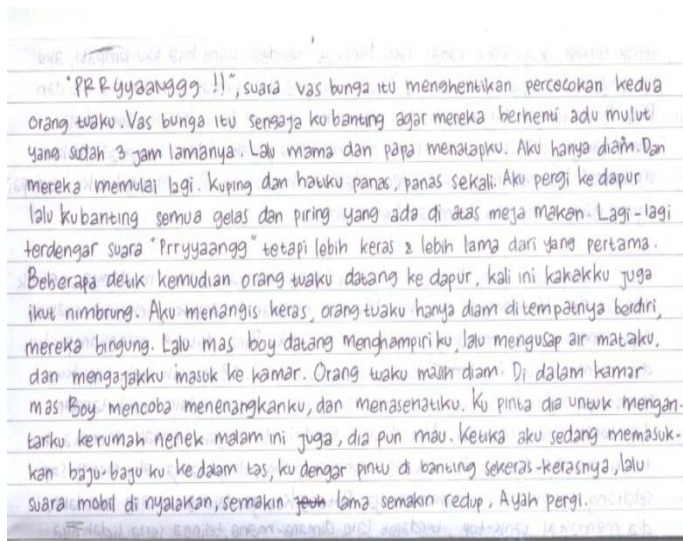 "PRRyyaaNggg !!", suara vas bunga itu menghentikan percecokan kedua
orang tuaku. Vas bunga itu sengaja ku banting agar mereka berhenti adu mulut
yang sudah 3 jam lamanya. Lalu mama dan papa menatapku. Aku hanya diam. Dan
mereka memulai lagi. Kuping dan hatiku panas, panas sekali. Aku pergi ke dapur
lalu kubanting semua gelas dan piring yang ada di atas meja makan. Lagi-lagi
terdengar suara "Prryyaangg" tetapi lebih keras & lebih lama dari yang pertama.
Beberapa detik kemudian orang tuaku datang ke dapur, kali ini kakakku juga
ikut nimbrung. Aku menangis keras, orang tuaku hanya diam ditempatnya berdiri,
mereka bingung. Lalu mas boy datang menghampiri ku, lalu mengusap air mataku,
dan mengajakku masuk ke kamar. Orang tuaku masih diam. Di dalam kamar
mas Boy mencoba menenangkanku, dan menasehatiku. Ku pinta dia untuk mengan-
tarku kerumah nenek malam ini juga, dia pun mau. Ketika aku sedang memasuk-
kan baju-baju ku ke dalam tas, ku dengar pintu di banting sekeras-kerasnya, lalu
suara mobil di nyalakan, semakin lama semakin redup, Ayah pergi.